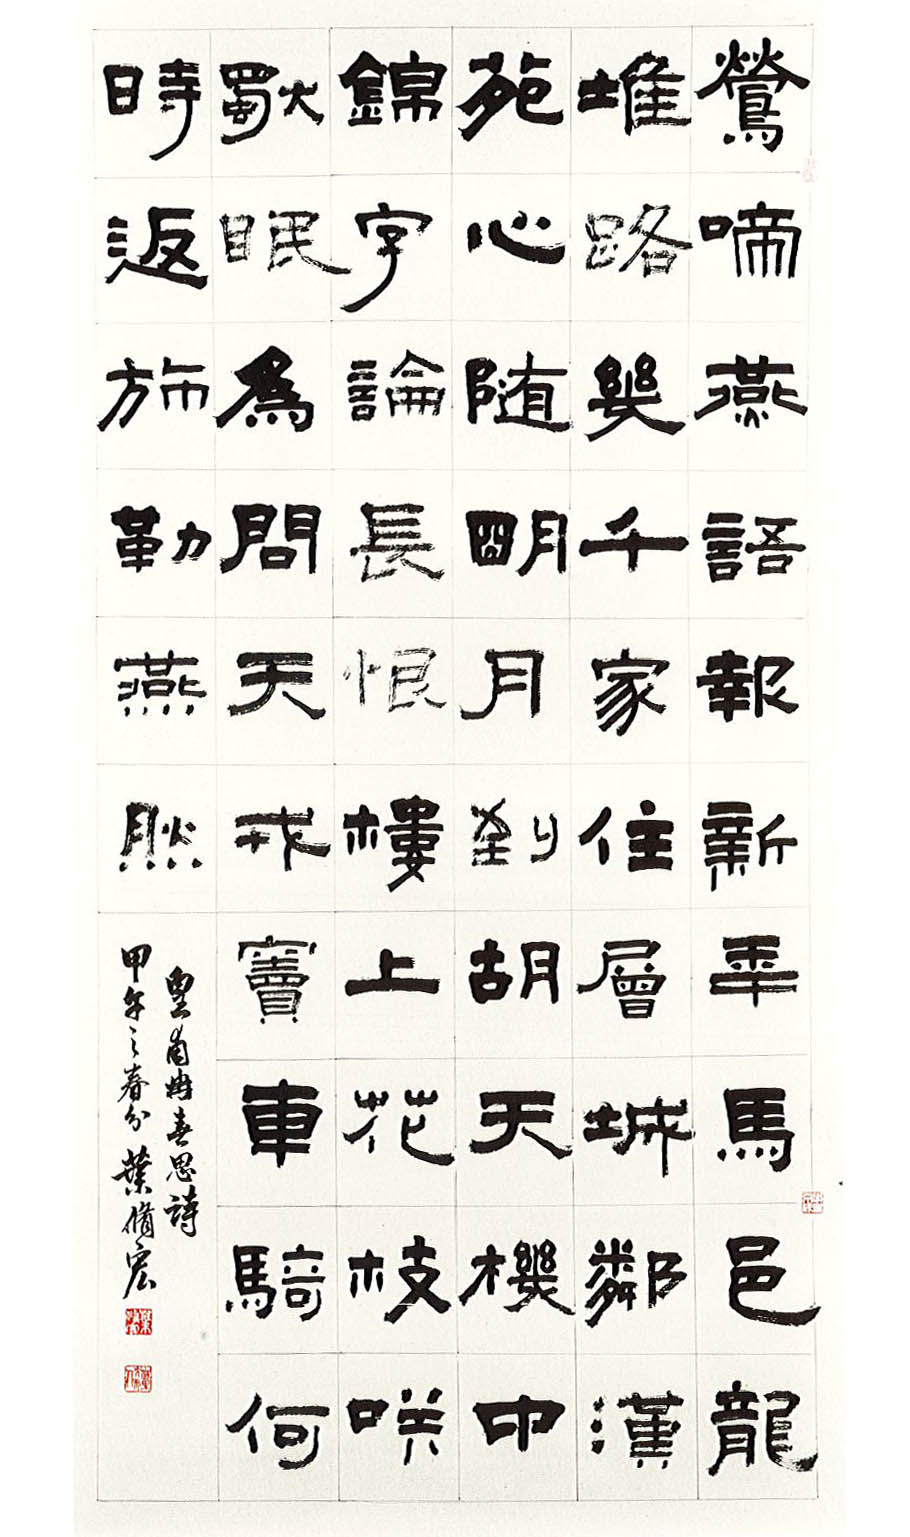 鶯啼燕語報新年馬邑龍
堆路幾千家住層城鄰漢
苑心随明月到胡天機中
錦字論長恨樓上花枝咲
獨眠為問元戎竇車騎何
時返斾勒燕然
皇甫冉春思詩
甲午之春分葉脩宏